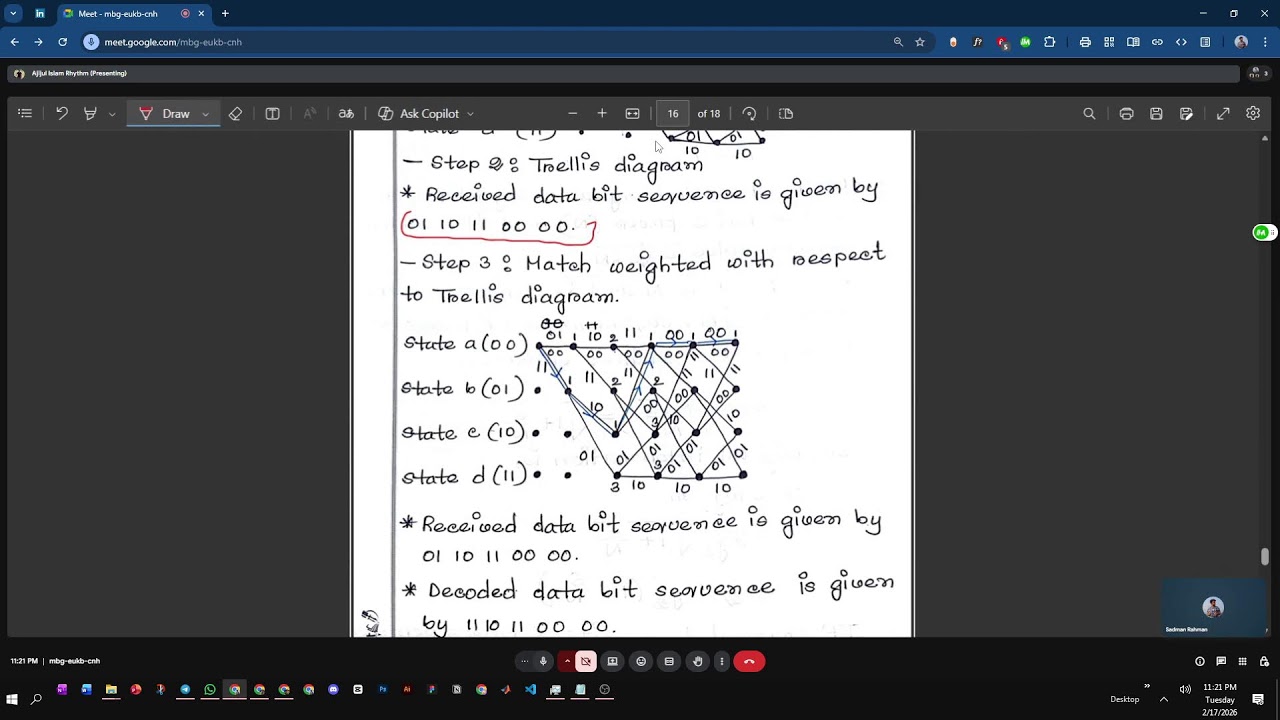 Meet - mbg-eukb-cnh
meet.google.com/mbg-eukb-cnh
Ajijul Islam Rhythm (Presenting)
3
Draw
Ask Copilot
16 of 18
(11)
01 01
10 10
- Step 2: Trellis diagram
* Received data bit sequence is given by
01 10 11 00 00.
- Step 3: Match weighted with respect
to Trellis diagram.
01 1 10 2 11 1 00 1 00 1
State a (00)
00 00 00 00 00
11 11 11 11 11
State b (01)
1 2 2
10 00 00 00
10 10
State c (10)
1 3
01 01 01 01 01 01
State d (11)
3 3
10 10 10
* Received data bit sequence is given by
01 10 11 00 00.
* Decoded data bit sequence is given
by 11 10 11 00 00.
Sadman Rahman
11:21 PM | mbg-eukb-cnh
3
Desktop
11:21 PM
Tuesday
2/17/2026